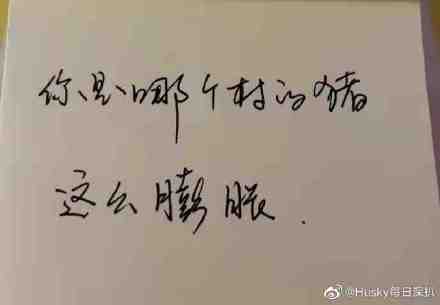 你是哪个村的猪
这么膨胀.
@Husky每日深扒